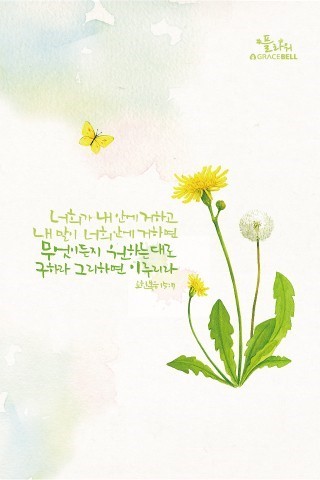 플라워
GRACEBELL
너희가 내 안에 거하고
내 말이 너희 안에 거하면
무엇이든지 원하는대로
구하라 그리하면 이루리라
요한복음 15:7